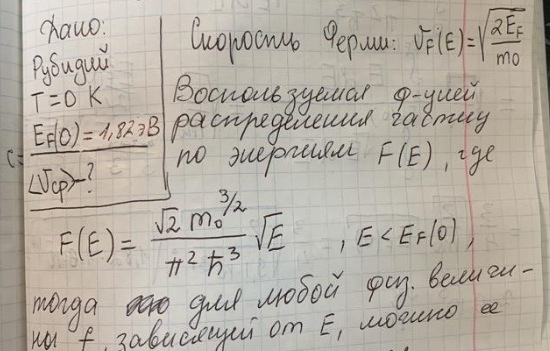 Дано:
Рубидий
T=0 К
E_F(0)=1,82 эВ
⟨V_ср⟩-?
Скорость Ферми: V_F(E)=√(2E_F/m_0)
Воспользуемся ф-уцей
распределения частиц
по энергиям F(E), где
F(E) = (√2 m_0^{3/2} / π² ħ³) √E , E < E_F(0),
тогда для любой физ. величи-
ны f, зависящий от E, можно ее